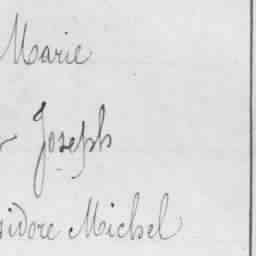 Marie
Joseph
sidore Michel